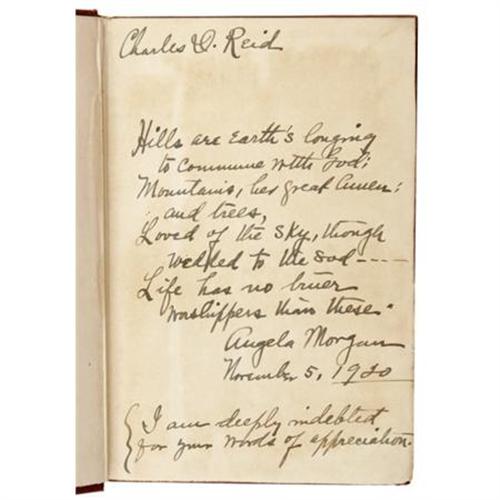 Charles D. Reid
Hills are Earth's longing
to commune with God;
Mountains, her great Amen;
and trees,
Loved of the sky, though
wedded to the sod ----
Life has no truer
worshippers than these.
Angela Morgan
November 5, 1920
{ I am deeply indebted
for your words of appreciation.